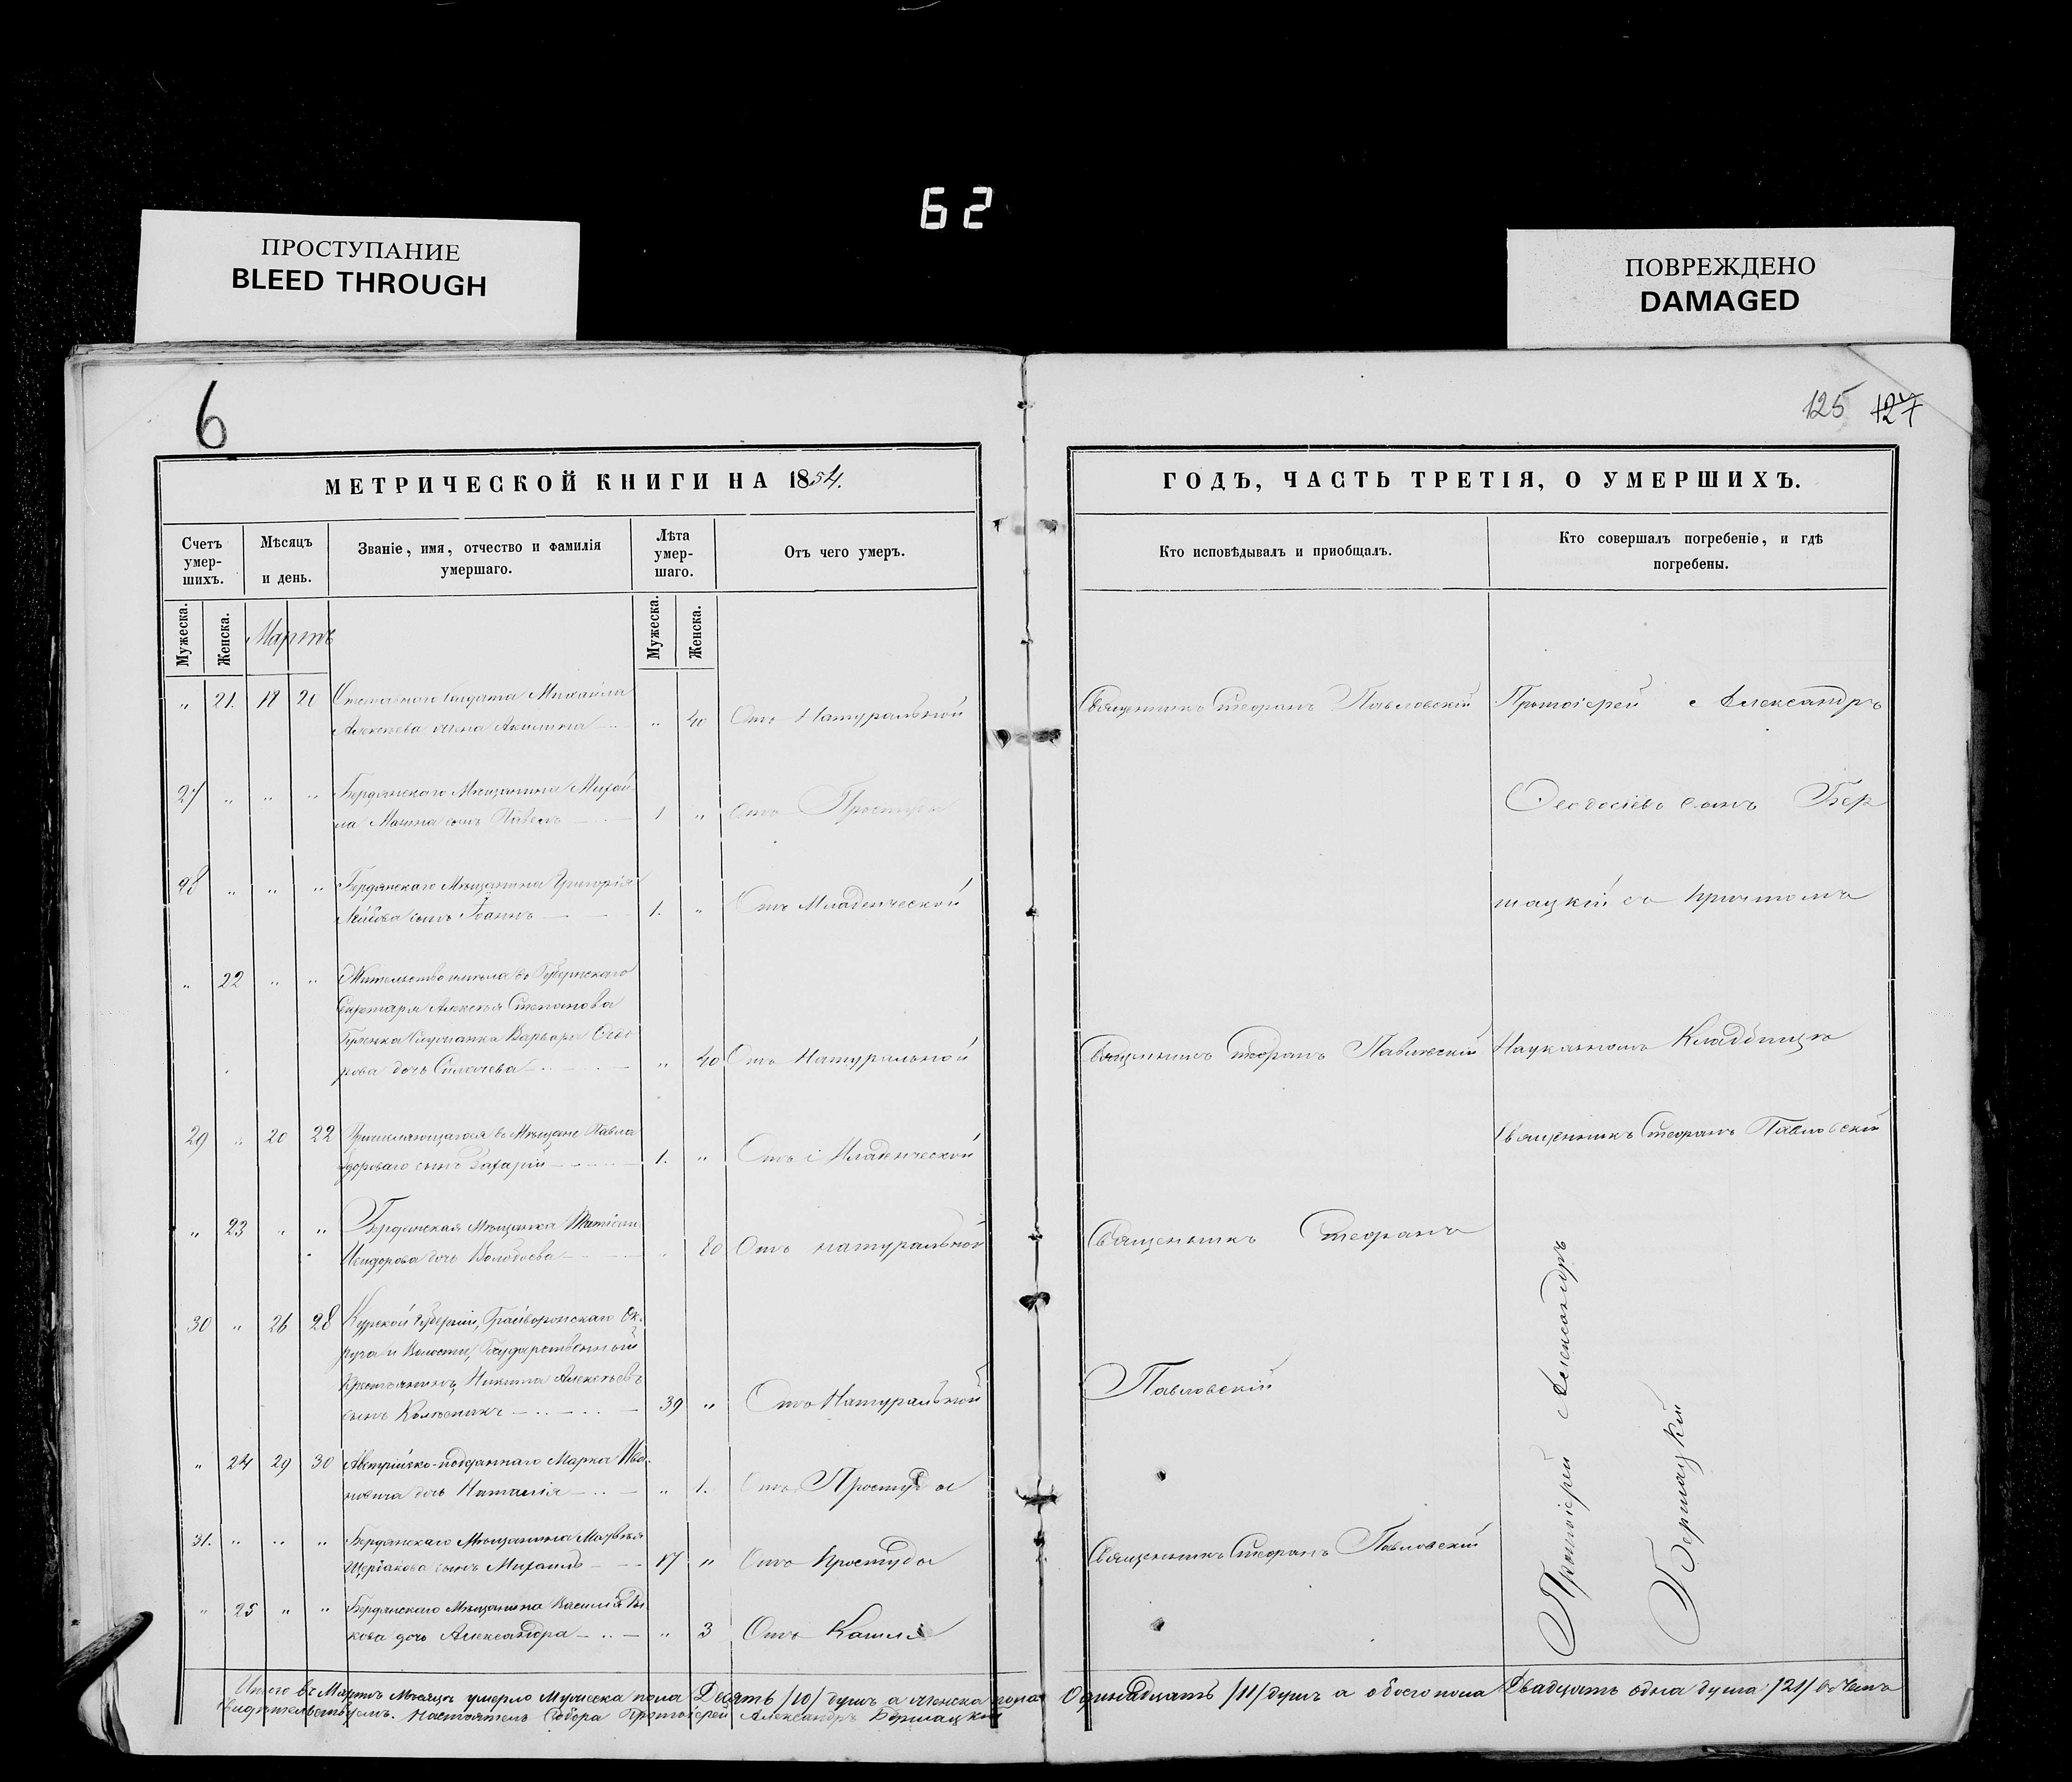 62
ПРОСТУПАНИЕ
BLEED THROUGH
ПОВРЕЖДЕНО
DAMAGED
6
125 127
МЕТРИЧЕСКОЙ КНИГИ НА 1854.
ГОДЪ, ЧАСТЬ ТРЕТІЯ, О УМЕРШИХЪ.
Счетъ умер-шихъ.
Мѣсяцъ и день.
Званіе, имя, отчество и фамилія умершаго.
Лѣта умер-шаго.
Отъ чего умеръ.
Кто исповѣдывалъ и приобщалъ.
Кто совершалъ погребеніе, и гдѣ погребены.
Мужеска. Женска. Мартъ Мужеска. Женска.
" 21. 18 20 Отставного Солдата Михаила
Алексѣева жена Акилина " 40 Отъ Натуральной
Священникъ Стефанъ Павловскій Протоіерей Александръ
27 " " " Бердянскаго Мѣщанина Михай-
ла сынъ Павелъ 1 " Отъ Простуды
Ѳеодосіевъ сынъ Бер
28 " " " Бердянскаго Мѣщанина Григорія
сынъ Іоаннъ 1. " Отъ Младенческой
шацкій съ Причтомъ
" 22 " " Губернскаго
Секретаря Алексѣя Степанова
Варвара Ѳедо
рова дочь " 40 Отъ Натуральной
Священникъ Стефанъ Павловскій Кладбищѣ
29 " 20 22 Причисляющагося въ Мѣщане Павла
Здороваго сынъ Захарій 1. " Отъ Младенческой
Священникъ Стефанъ Павловскій
" 23 " " Бердянская Мѣщанка
Исидорова дочь " 80 Отъ натуральной
Священникъ Стефанъ
30 " 26 28 Курской Губерніи, Грайворонскаго Ок-
руга и Волости, Государственный
Крестьянинъ, Никита Алексѣевъ
сынъ Колесникъ 39 " Отъ Натуральной
Павловскій
" 24 29 30 Австрійско-подданнаго Марка Ива-
новича дочь Наталія " 1. Отъ Простуды
31. " " " Бердянскаго Мѣщанина Матвѣя
Щербакова сынъ Михаилъ 17 " Отъ Простуды
Священникъ Стефанъ Павловскій
" 25 " " Бердянскаго Мѣщанина Василія Бы-
кова дочь Александра " 3 Отъ Кашля
Протоіерей Александръ
Бершацкій
Итого въ Мартѣ Мѣсяцѣ умерло Мужеска пола Десять /10/ душъ а Женска пола Одинадцать /11/ душъ а обоего пола Двадцать одна душа /21/ въ чемъ
свидѣтельствуемъ. Настоятель Собора Протоіерей Александръ Бершацкій